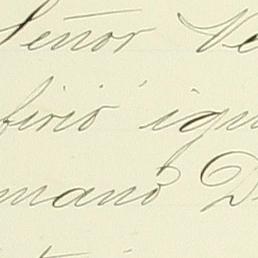 Señor Ve
firió igu
mano D